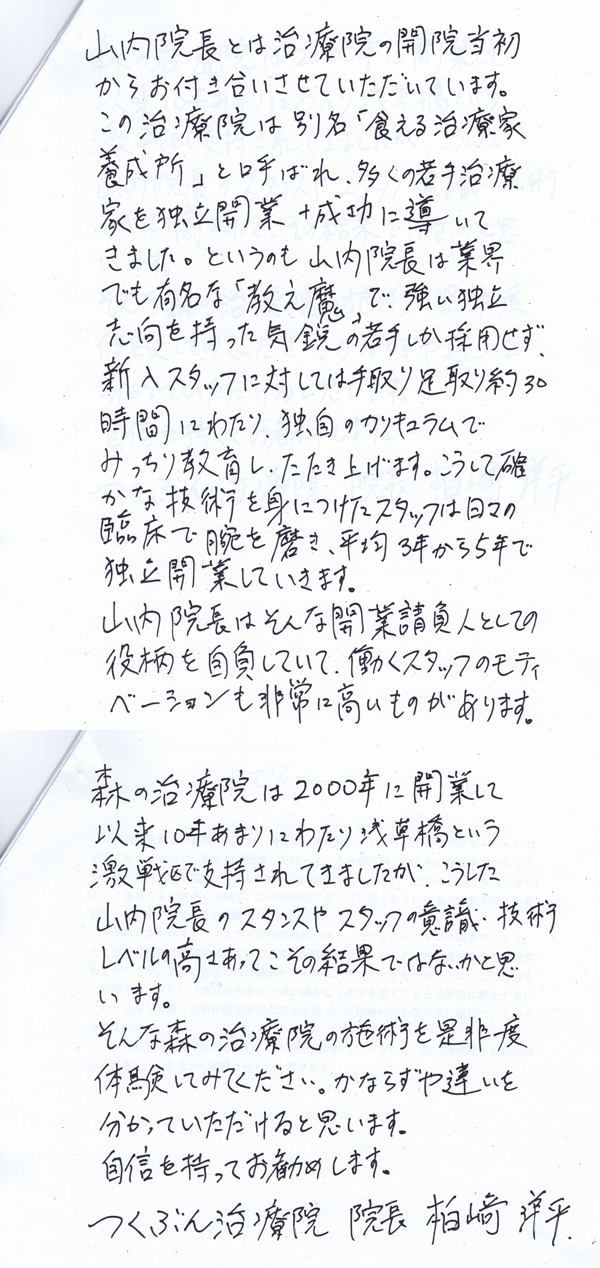 山内院長とは治療院の開院当初
からお付き合いさせていただいています。
この治療院は別名「食える治療家
養成所」と呼ばれ、多くの若手治療
家を独立開業+成功に導いて
きました。というのも山内院長は業界
でも有名な「教え魔」で、強い独立
志向を持った気鋭の若手しか採用せず、
新入スタッフに対しては手取り足取り約30
時間にわたり、独自のカリキュラムで
みっちり教育し、たたき上げます。こうして確
かな技術を身につけたスタッフは日々の
臨床で腕を磨き、平均3年から5年で
独立開業していきます。
山内院長はそんな開業請負人としての
役柄を自負していて、働くスタッフのモティ
ベーションも非常に高いものがあります。
森の治療院は2000年に開業して
以来10年あまりにわたり浅草橋という
激戦区で支持されてきましたが、こうした
山内院長のスタンスやスタッフの意識・技術
レベルの高さあってこその結果ではないかと思
います。
そんな森の治療院の施術を是非一度
体験してみてください。かならずや違いを
分かっていただけると思います。
自信を持ってお勧めします。
つくぶん治療院 院長 柏﨑 洋平